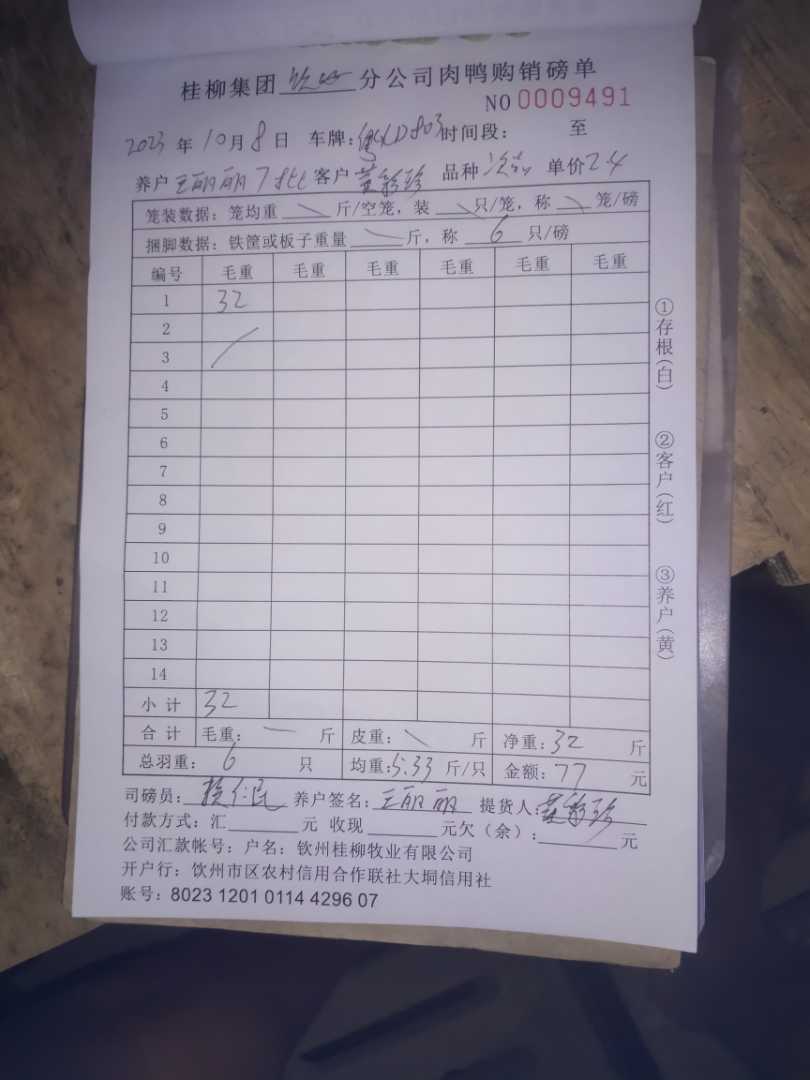 桂柳集团 钦州 分公司肉鸭购销磅单
NO 0009491
2023 年 10 月 8 日 车牌: D803 时间段: 至
养户 王丽丽 7批 客户 黄彩珍 品种 次品 单价 2.4
笼装数据: 笼均重 \ 斤/空笼, 装 \ 只/笼, 称 \ 笼/磅
捆脚数据: 铁筐或板子重量 \ 斤, 称 6 只/磅
编号 毛重 毛重 毛重 毛重 毛重 毛重
1 32
2
3
4
5
6
7
8
9
10
11
12
13
14
小计 32
合计 毛重: — 斤 皮重: \ 斤 净重: 32 斤
总羽重: 6 只 均重: 5.33 斤/只 金额: 77 元
司磅员: 仁民 养户签名: 王丽丽 提货人: 黄彩珍
付款方式: 汇 元 收现 元欠(余): 元
公司汇款帐号: 户名: 钦州桂柳牧业有限公司
开户行: 钦州市区农村信用合作联社大垌信用社
账号: 8023 1201 0114 4296 07
①存根(白)
②客户(红)
③养户(黄)